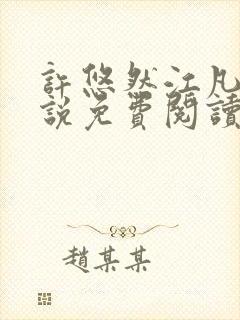 許悠然江凡
說免費閱讀
趙某某